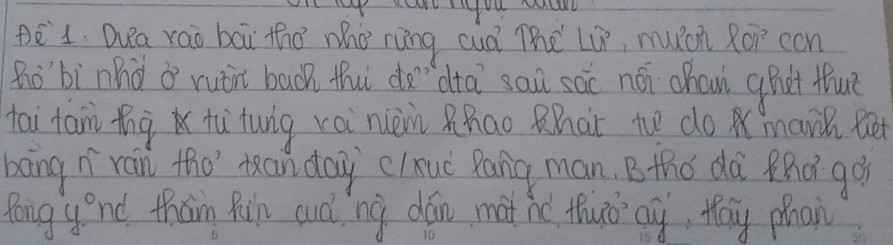 Đề 1. Dựa vào bài thơ nhớ rừng của Thế Lữ, mượn lời con
hổ bị nhớ ở vườn bách thú để dta sâu sắc nỗi chán ghét thực
tại tầm thg tù túng và niềm khao khát tự do mãnh liệt
bằng n vần thơ tràn đầy c/xúc lãng mạn. B thơ đã khơi gợi
lòng y nc thầm kín của ng dân mất nc thuở ấy. Hãy phân